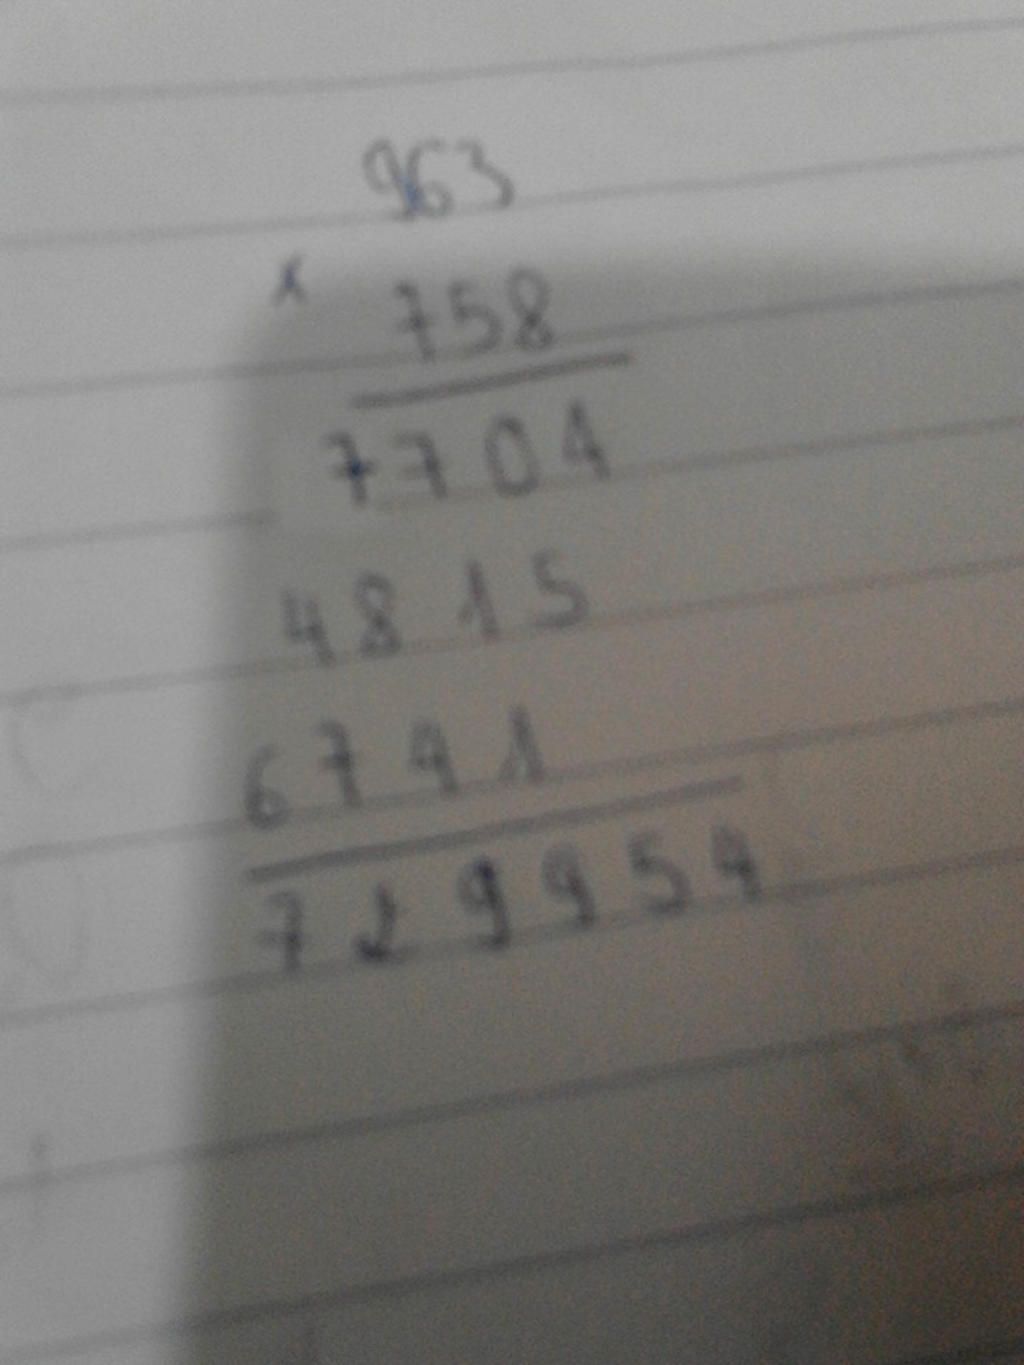 963
x 758
7704
4815
6741
729954